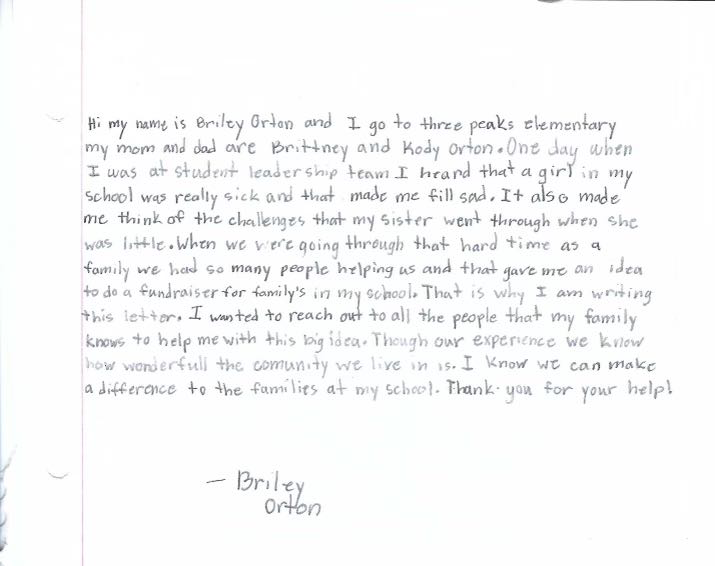 Hi my name is Briley Orton and I go to three peaks elementary
my mom and dad are Brittney and Kody Orton. One day when
I was at student leadership team I heard that a girl in my
school was really sick and that made me fill sad. It also made
me think of the challenges that my sister went through when she
was little. When we were going through that hard time as a
family we had so many people helping us and that gave me an idea
to do a fundraiser for family's in my school. That is why I am writing
this letter. I wanted to reach out to all the people that my family
knows to help me with this big idea. Though our experience we know
how wonderfull the comunity we live in is. I know we can make
a difference to the families at my school. Thank-you for your help!
— Briley
Orton